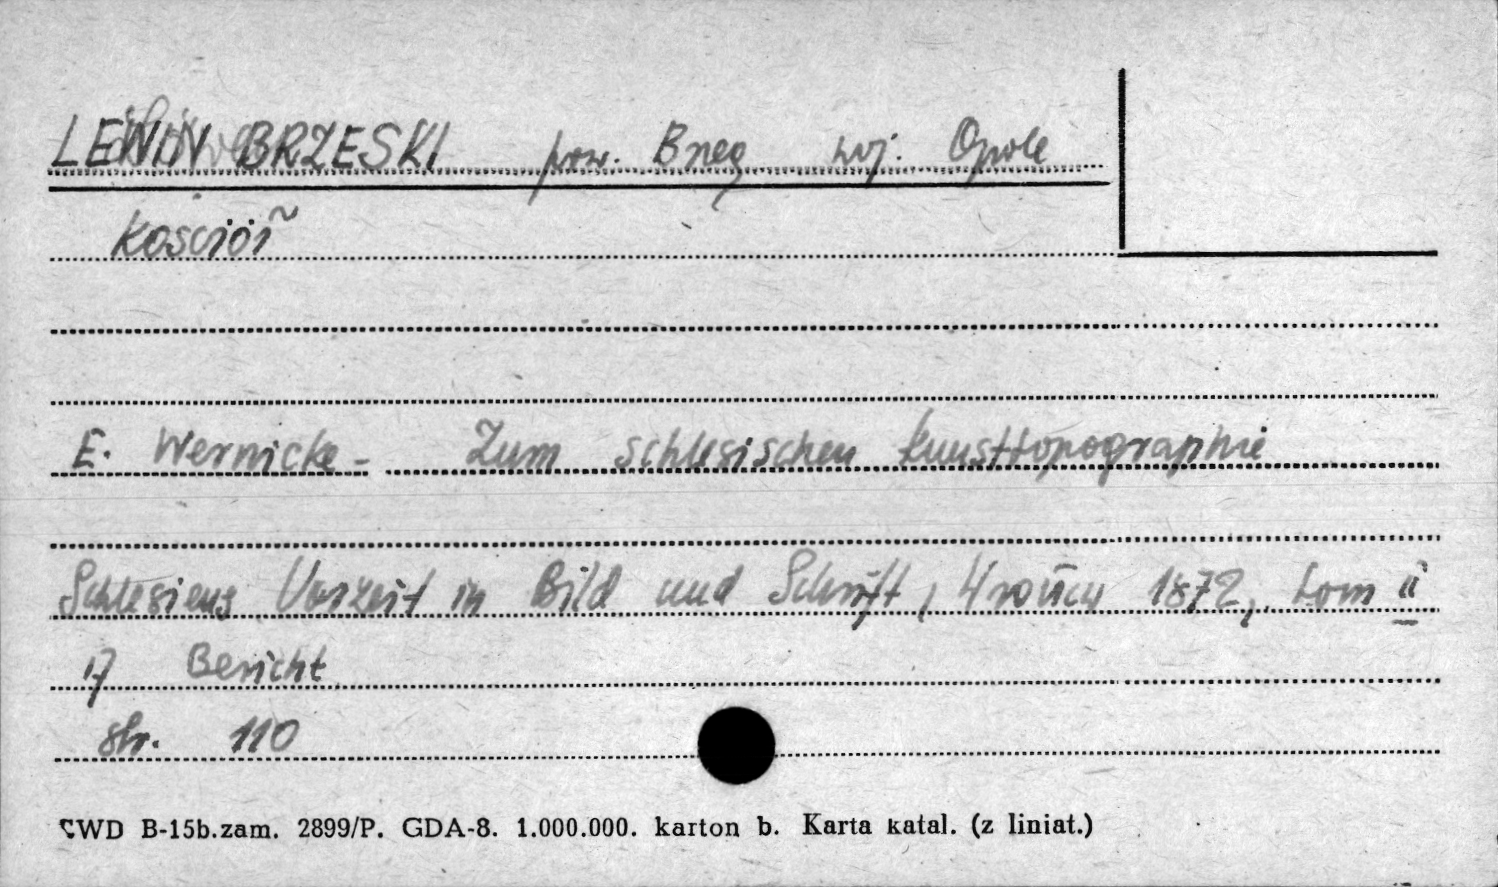 LEWIN BRZESKI pow. Brzeg woj. Opole
Kościół
E. Wernicke - Zum schlesischen Kunsttopographie
Schlesiens Vorzeit in Bild und Schrift, Wrocław 1872, tom II
17 Bericht
str. 110
CWD B-15b.zam. 2899/P. GDA-8. 1.000.000. karton b. Karta katal. (z liniat.)